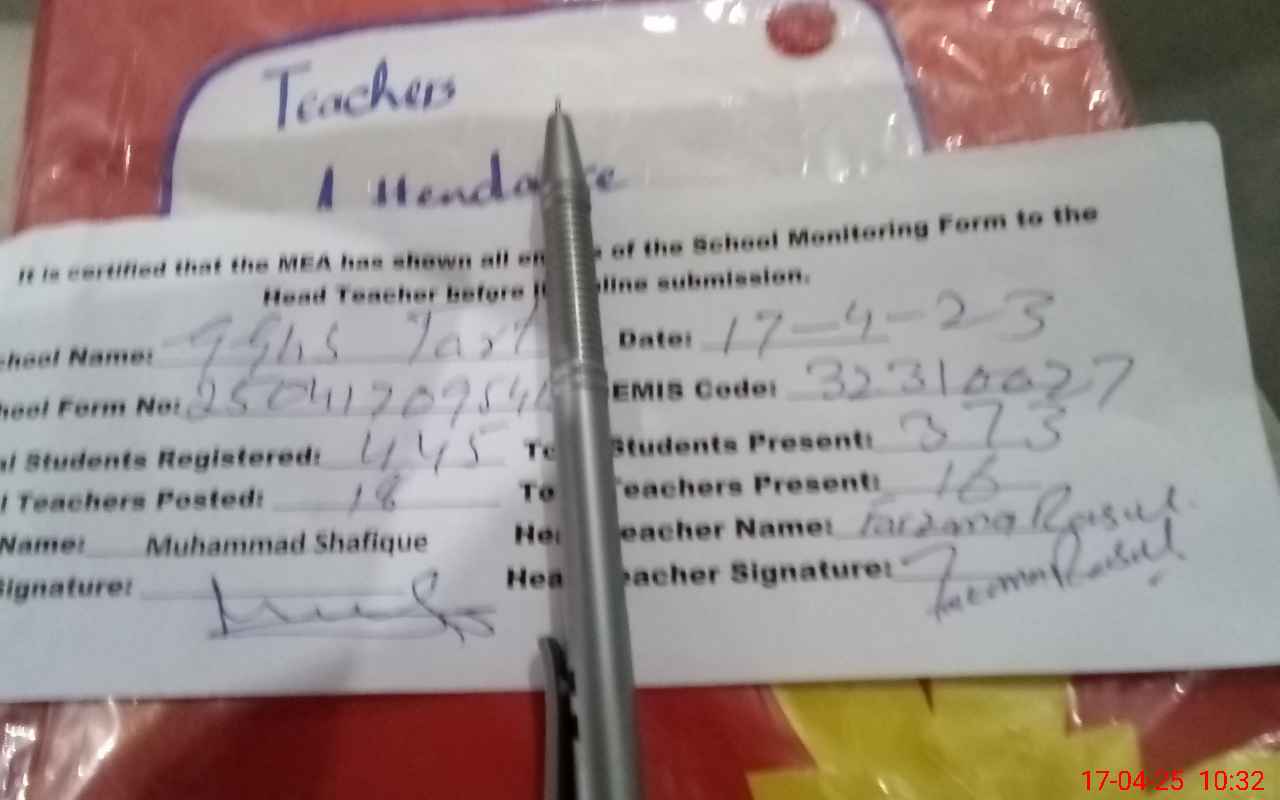 Teachers
Attendance
It is certified that the MEA has shown all en of the School Monitoring Form to the
Head Teacher before line submission.
chool Name: GGHS Date: 17-4-23
hool Form No: 2504170954 EMIS Code: 32310027
al Students Registered: 445 To Students Present: 373
l Teachers Posted: 18 To eachers Present: 16
Name: Muhammad Shafique He eacher Name: Farzana Rasul
Signature: Hea eacher Signature: Rasul
17-04-25 10:32